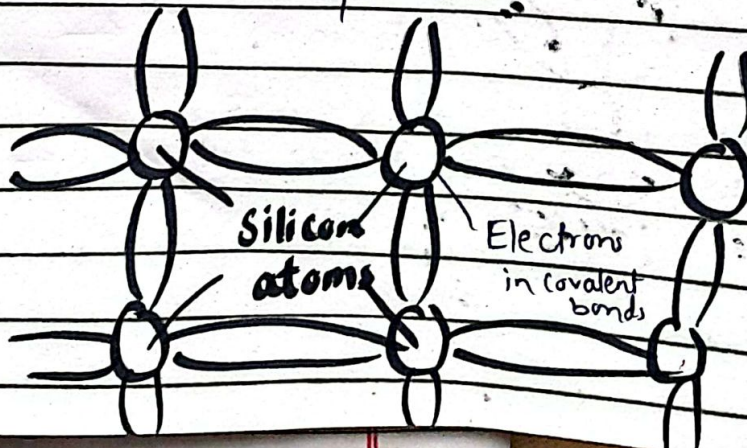 Silicon
atoms
Electrons
in covalent
bonds